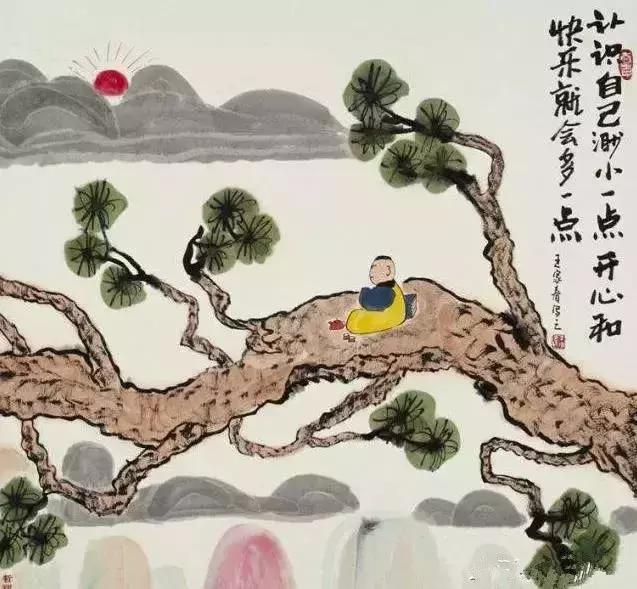 认识自己渺小一点开心和
快乐就会多一点
王家春写之